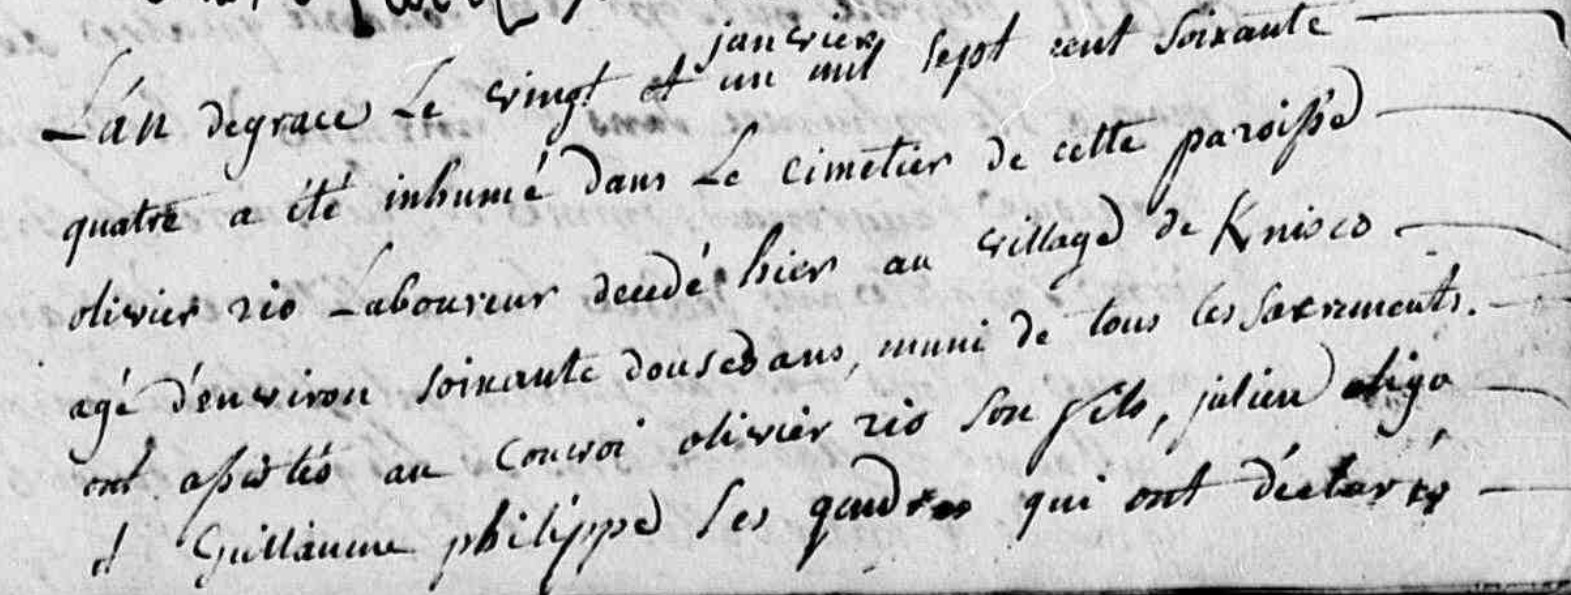 janvier
L'án degrace Le vingt et un mil sept cent soixante
quatre a été inhumé dans Le cimetier de cette paroisse
olivier rio Laboureur decedé hier au village de Knisco
agé d'environ soixante douse ans, muni de tous les sacrements.
ont assistés au convoi olivier rio son fils, julien eligo
et Guillaume philippe ses gendres qui ont déclarés